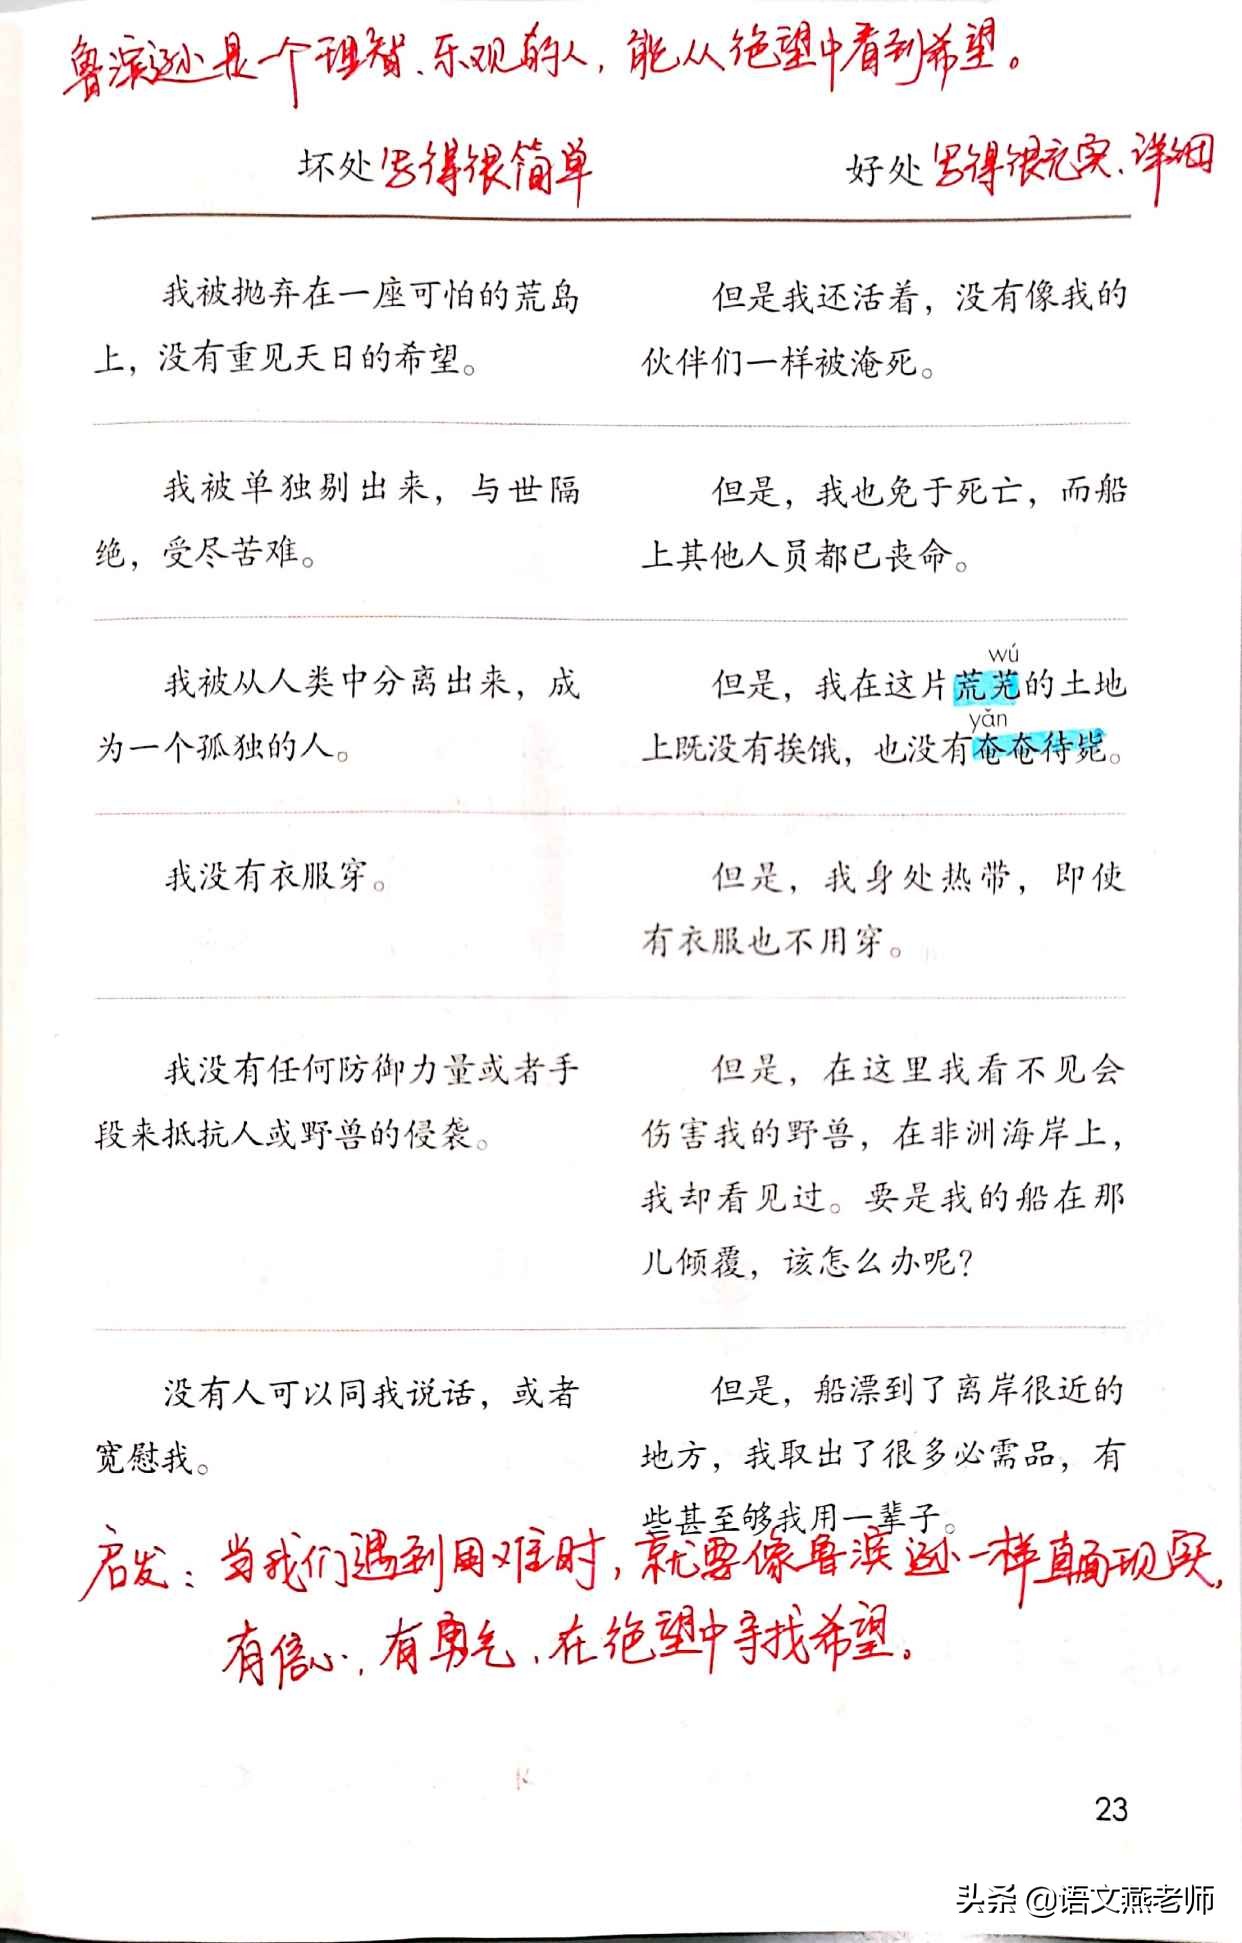 鲁滨逊是一个理智、乐观的人，能从绝望中看到希望。
坏处 写得很简单
好处 写得很充实、详细
我被抛弃在一座可怕的荒岛
上，没有重见天日的希望。
但是我还活着，没有像我的
伙伴们一样被淹死。
我被单独剔出来，与世隔
绝，受尽苦难。
但是，我也免于死亡，而船
上其他人员都已丧命。
我被从人类中分离出来，成
为一个孤独的人。
wú
但是，我在这片荒芜的土地
yǎn
上既没有挨饿，也没有奄奄待毙。
我没有衣服穿。
但是，我身处热带，即使
有衣服也不用穿。
我没有任何防御力量或者手
段来抵抗人或野兽的侵袭。
但是，在这里我看不见会
伤害我的野兽，在非洲海岸上，
我却看见过。要是我的船在那
儿倾覆，该怎么办呢？
没有人可以同我说话，或者
宽慰我。
但是，船漂到了离岸很近的
地方，我取出了很多必需品，有
些甚至够我用一辈子。
启发：当我们遇到困难时，就要像鲁滨逊一样直面现实，
有信心，有勇气，在绝望中寻找希望。
23
头条 @语文燕老师